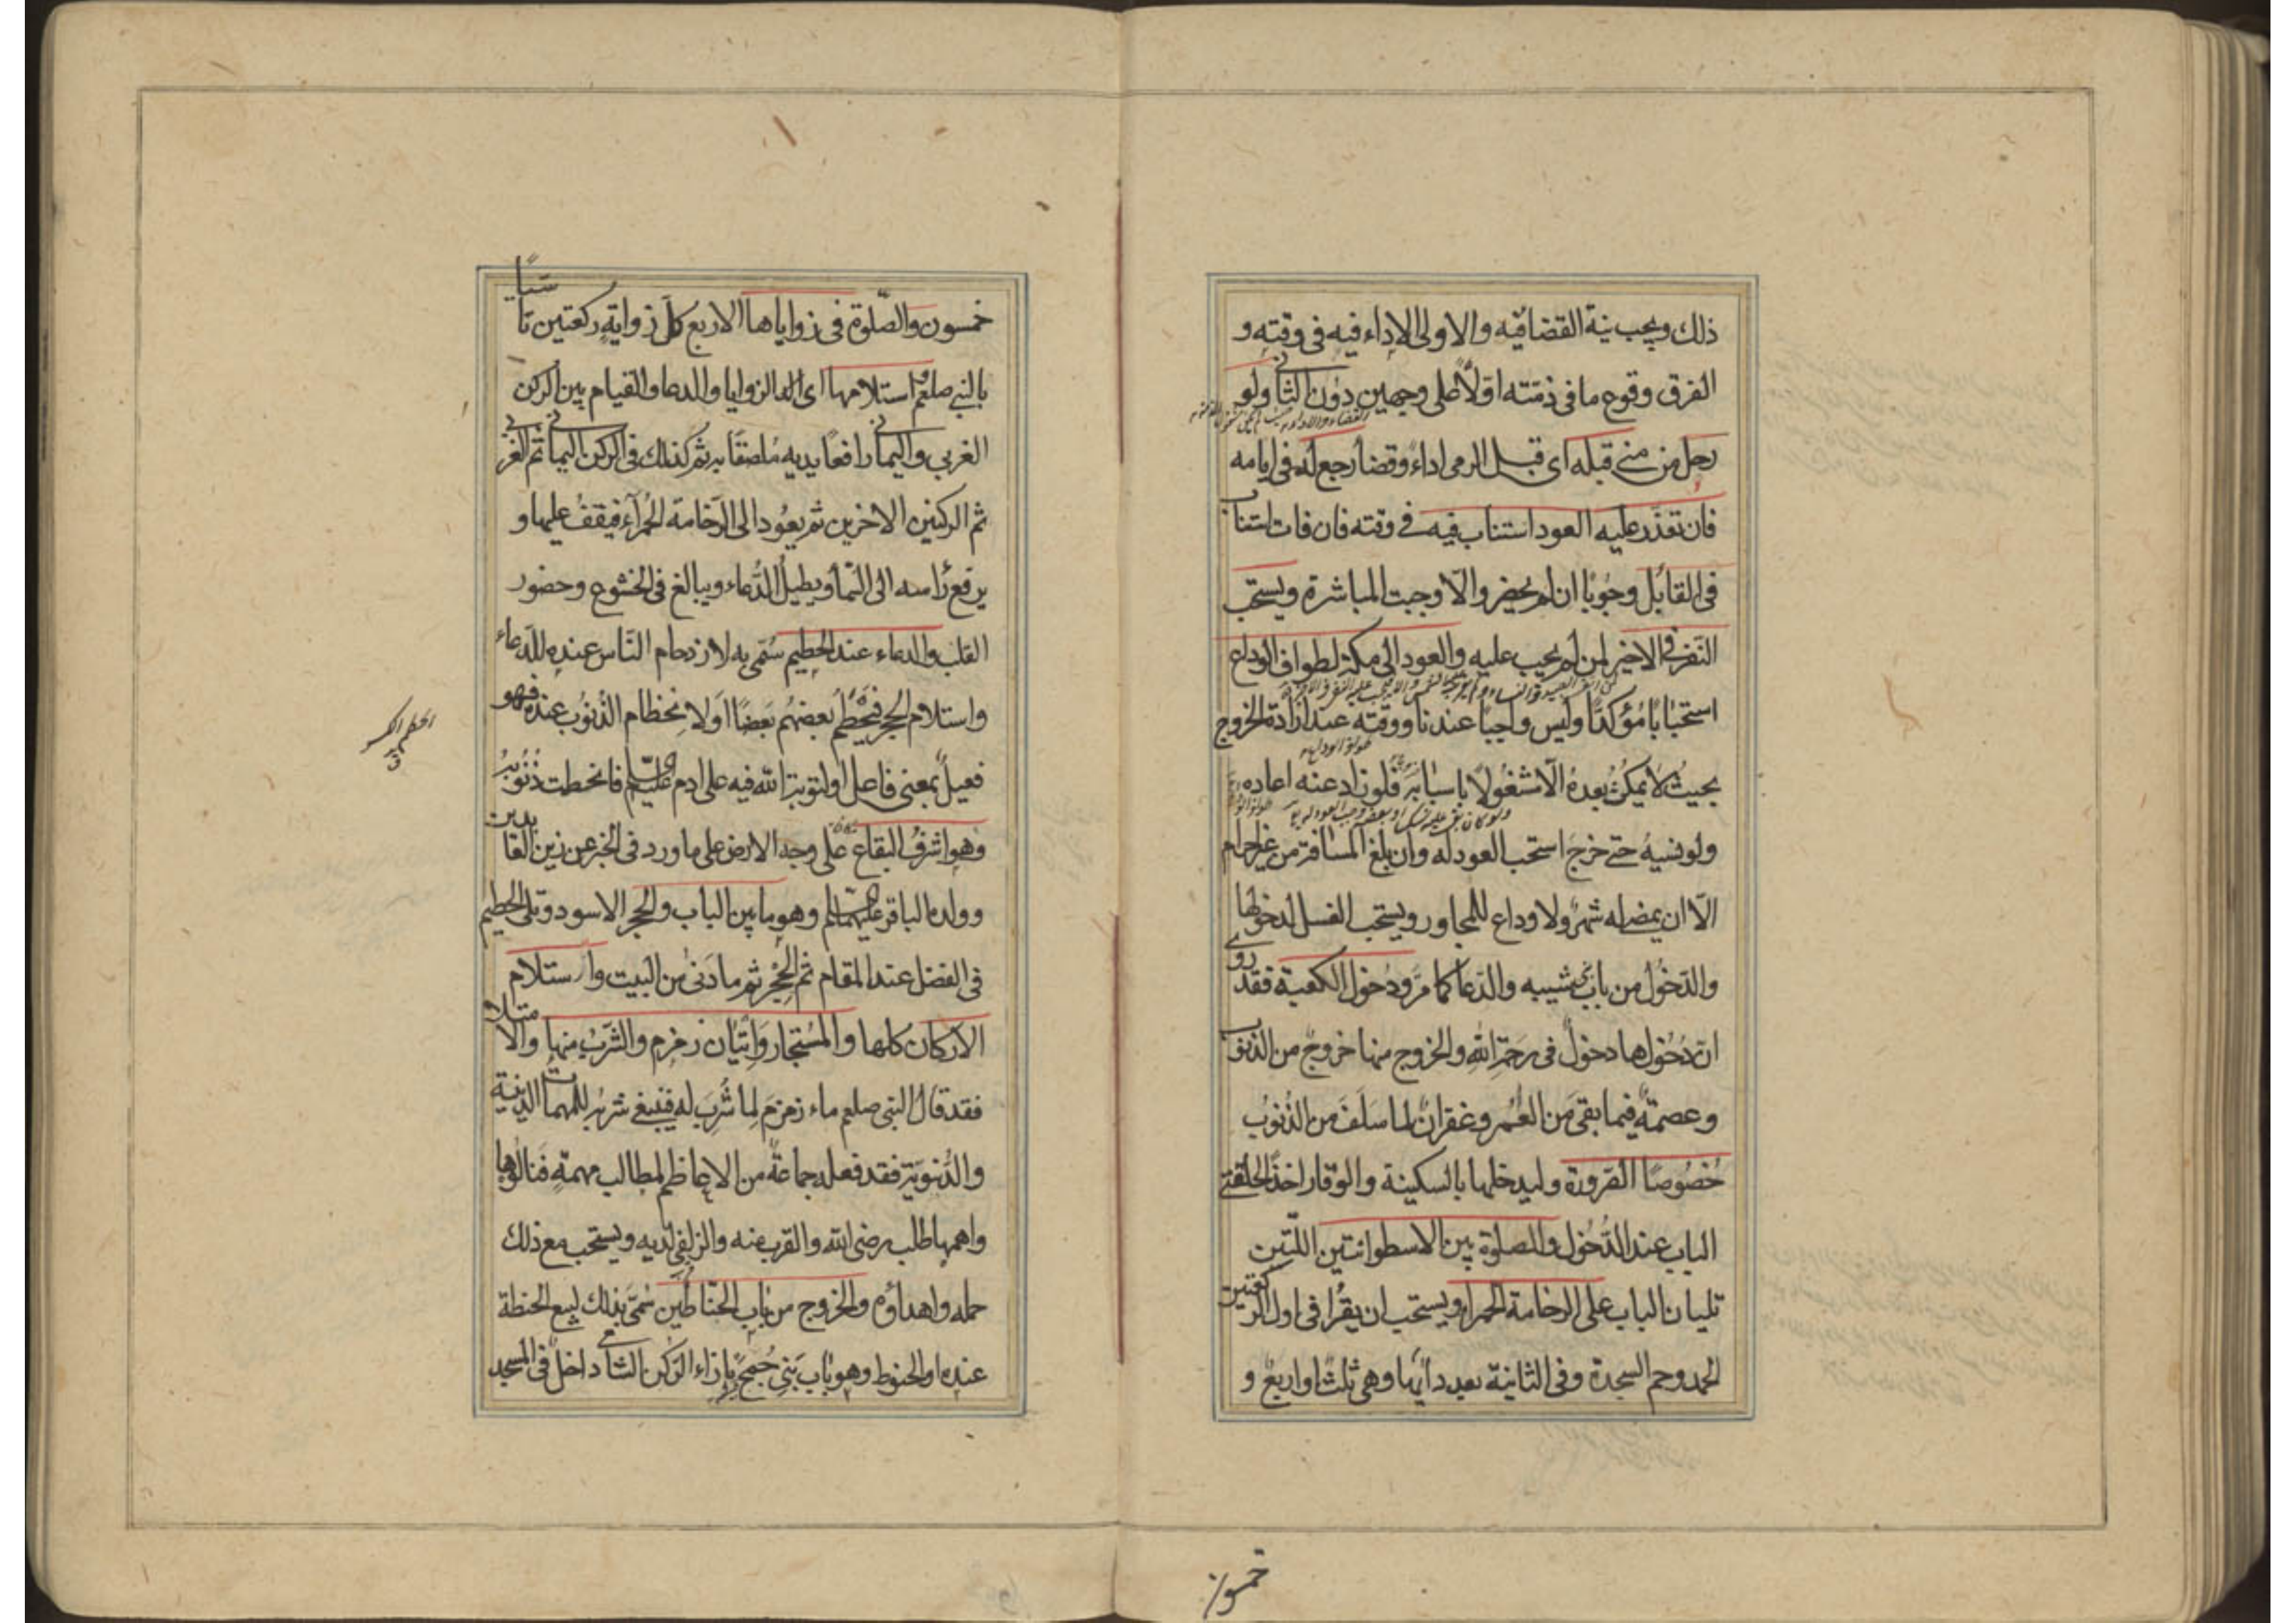 ذلك ويجب نية القضا فيه والاولى الاداء فيه في وقته و
الفرق وقوع ما في ذمته اولا على وجهين دون الثاني ولو
رحل من منى قبله اى قبل الرمى اداء وقضا رجع له في ايامه
فان تعذر عليه العود استناب فيه في وقته فان فات استناب
في القابل وجوبا ان لم يحضر والا وجبت المباشرة ويستحب
النفر في الاخير لمن لم يجب عليه والعود الى مكة لطواف الوداع
استحبابا مؤكدا وليس واجبا عندنا ووقته عند ارادة الخروج
بحيث لا يمكث بعده الا مشغولا باسبابه فلو زاد عنه اعاده
ولو نسيه حتى خرج استحب العود له وان بلغ المسافة من غير احرام
الا ان يمضى له شهر ولا وداع للمجاور ويستحب الغسل لدخولها
والدخول من باب بنى شيبه والدعا كما مر ودخول الكعبة فقد روى
ان دخولها دخول في رحمة الله والخروج منها خروج من الذنوب
وعصمة فيما بقى من العمر وغفران لما سلف من الذنوب
خصوصا الصرورة وليدخلها بالسكينة والوقار اخذا بحلقتى
الباب عند الدخول والصلوة بين الاسطوانتين اللتين
تليان الباب على الرخامة الحمراء ويستحب ان يقرا في اولى الركعتين
الحمد وحم السجدة وفي الثانية بعدد اٰيها وهى ثلث او اربع و
خمسون
خمسون والصلوة في زواياها الاربع كل زواية ركعتين تاسيا
بالنبى صلعم واستلامها اى الزوايا والدعا والقيام بين الركن
الغربي واليماني رافعا يديه ملصقا به ثم كذلك في الركن اليماني ثم الغربي
ثم الركنين الاخرين ثم يعود الى الرخامة الحمراء فيقف عليها و
يرفع راسه الى السما ويطيل الدعاء ويبالغ في الخشوع وحضور
القلب والدعاء عند الحطيم سمى به لازدحام الناس عنده للدعاء
واستلام الحجر فيحطم بعضهم بعضا او لانحطام الذنوب عنده فهو
فعيل بمعنى فاعل او لتوبة الله فيه على ادم عليه السلم فانحطت ذنوبه
وهو اشرف البقاع على وجه الارض على ما ورد في الخبر عن زين العابدين
وولده الباقر عليهما السلم وهو ما بين الباب والحجر الاسود وتلى الحطيم
في الفضل عند المقام ثم الحجر ثم ما دنى من البيت واستلام
الاركان كلها والمستجار واتيان زمزم والشرب منها والامتلاء
فقد قال النبى صلعم ماء زمزم لما شرب له فينبغي شربه للمهمات الدينية
والدنوية فقد فعله جماعة من الاعاظم لمطالب مهمة فنالوها
واهمها طلب مرضى الله والقرب منه والزلفى لديه ويستحب مع ذلك
حمله واهداؤه والخروج من باب الحناطين سمى بذلك لبيع الحنطة
عنده او الحنوط وهو باب بنى جمح بازاء الركن الشامى داخل في المسجد